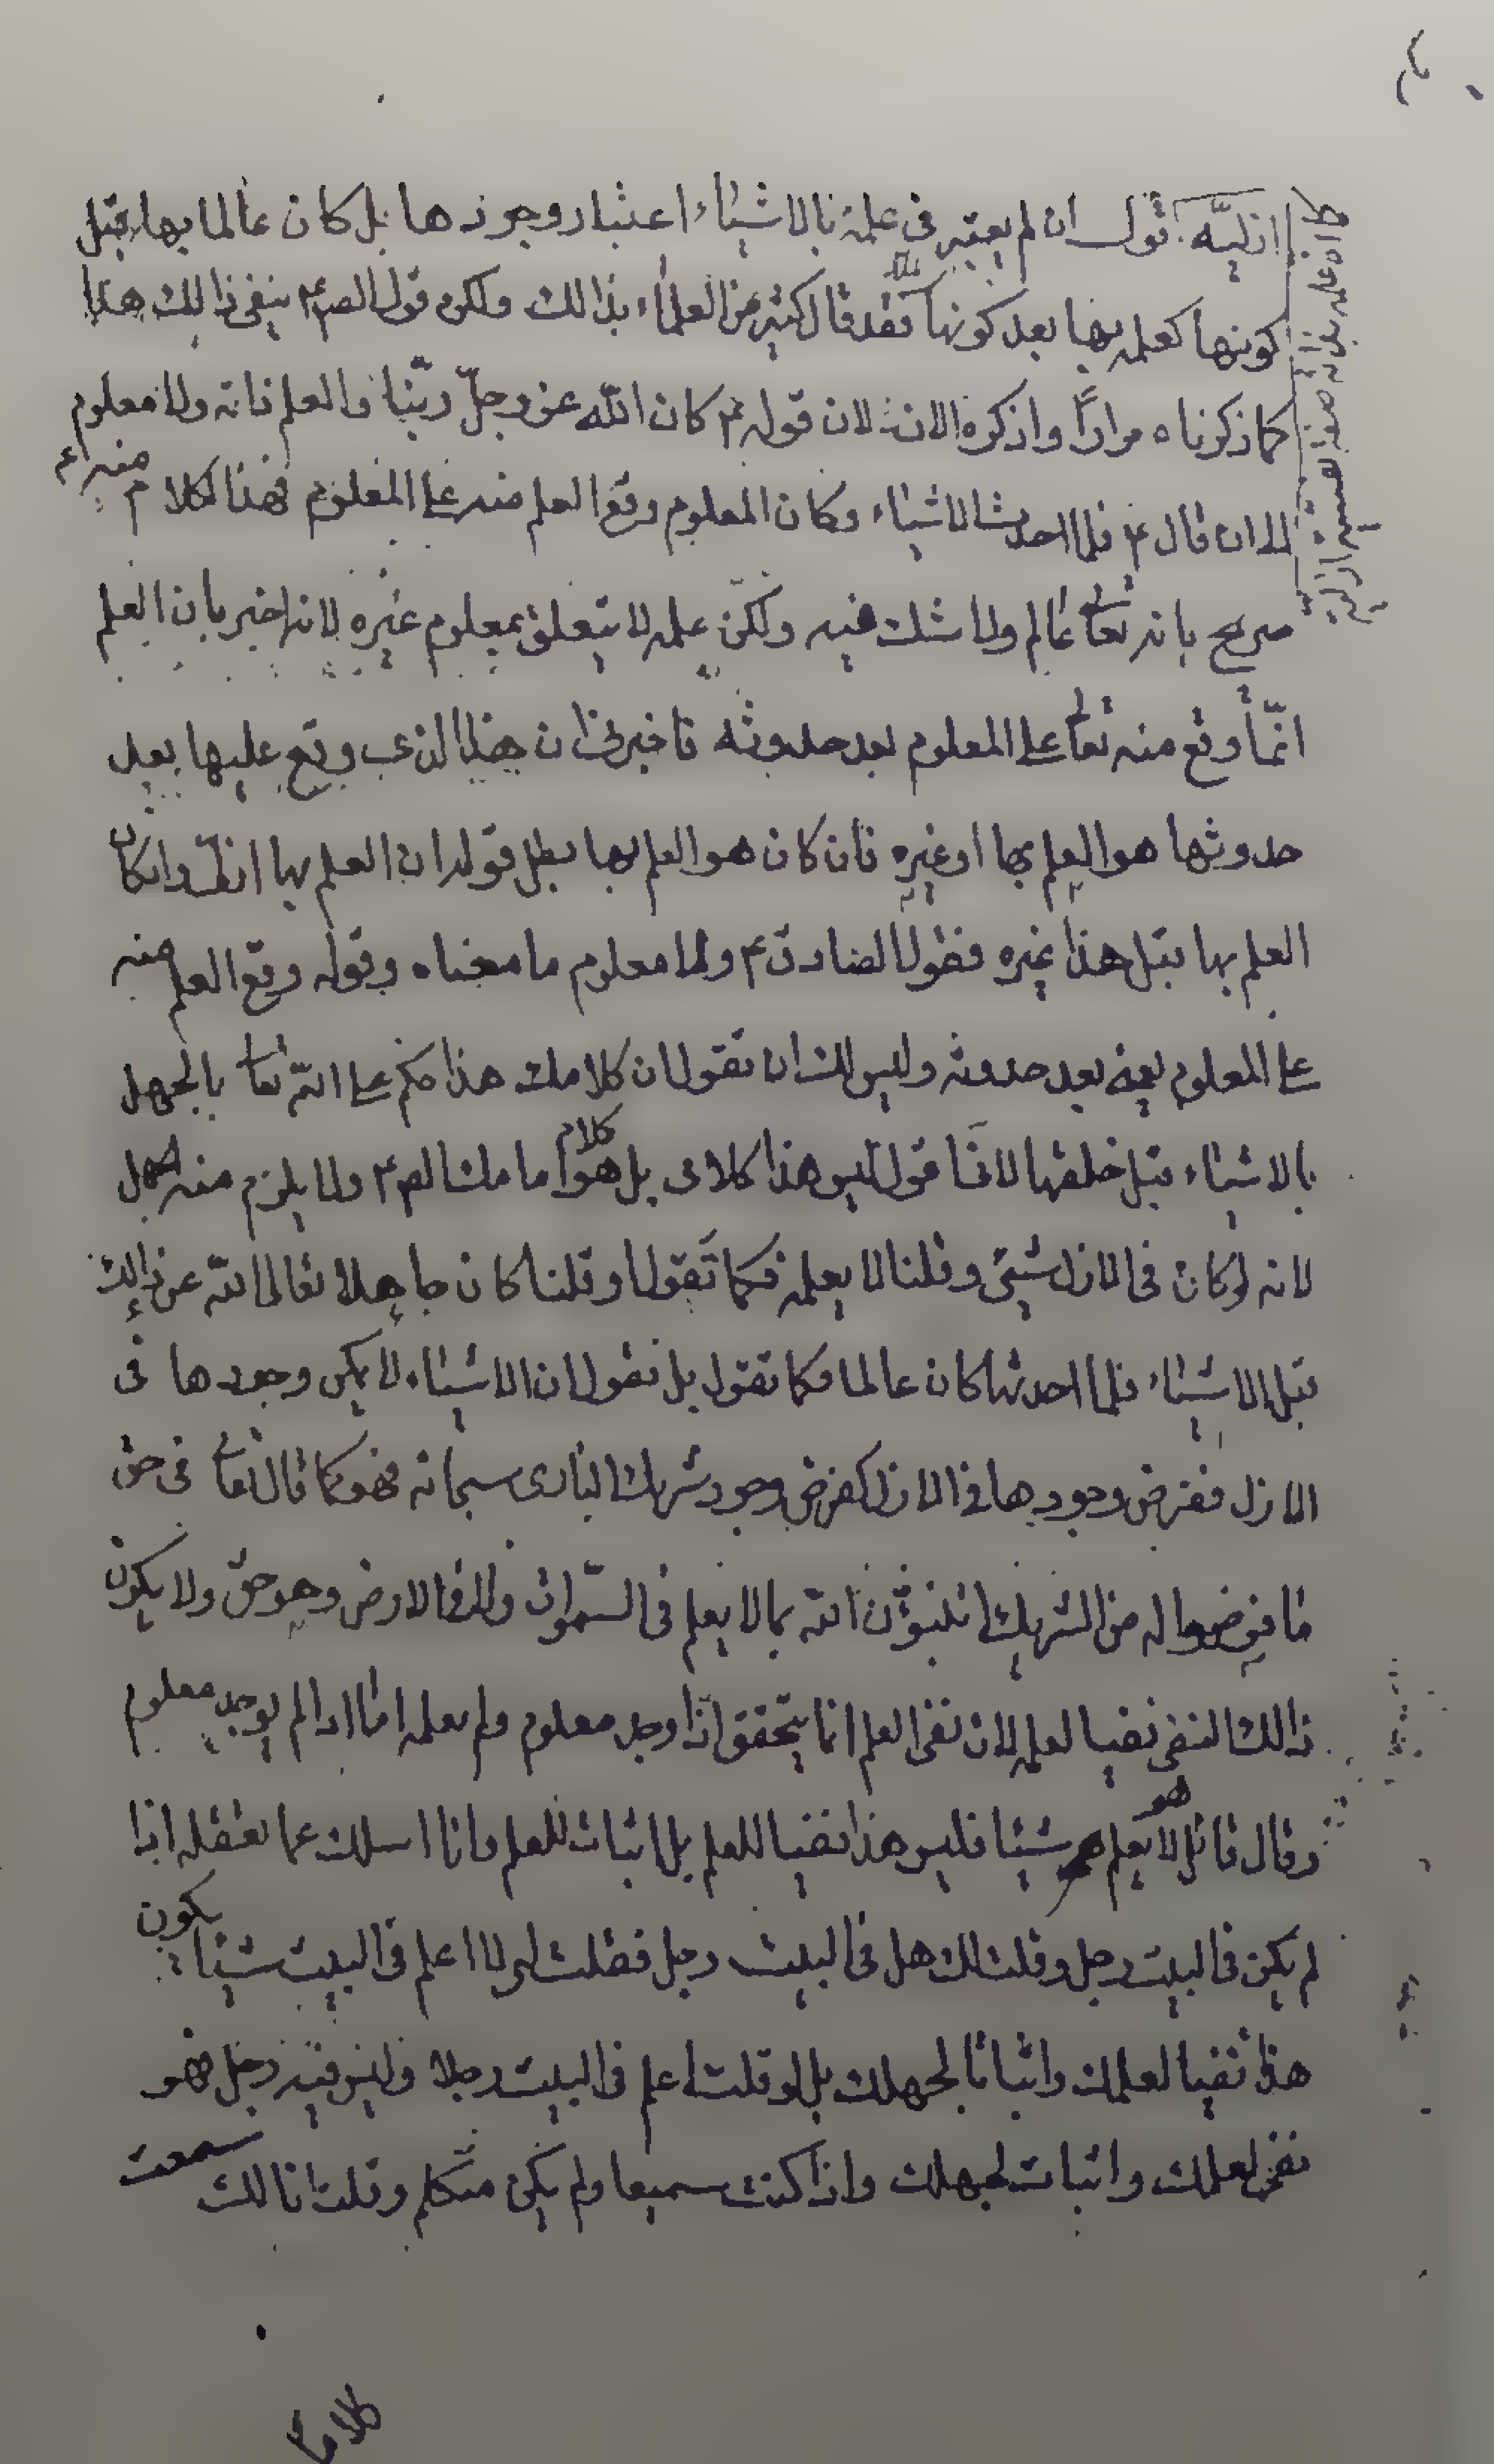 ازليّه اقول ان لم يعتبر فى علمه بالاشياء اعتبار وجودها بل كان عالما بها قبل
كونها كعلمه بها بعد كونها فقد قال كثير من العلماء بذالك ولكن قول الص ع ينفى ذالك هذا
كما ذكرناه مرارًا واذكره الان لان قوله ع كان الله عز وجلّ ربّنا والعلم ذاته ولا معلوم
الى ان قال ع فلما احدث الاشياء وكان المعلوم وقع العلم منه على المعلوم فهذا الكلام منه ع
صريح بانه تعالى عالم ولا شك فيه ولكن علمه لا يتعلق بمعلوم غيره لانه اخبر بان العلم
انّما وقع منه تعالى على المعلوم بعد حدوثه فاخبرنى ان هذا الذى وقع عليها بعد
حدوثها هو العلم بها او غيره فان كان هو العلم بها بطل قوله ان العلم بها ازلى وان كان
العلم بها قبل هذا غيره فقول الصادق ع ولا معلوم ما معناه وقوله وقع العلم منه
على المعلوم يعنى بعد حدوثه وليس لك ان تقول ان كلامك هذا حكم على الله تعا بالجهل
بالاشياء قبل خلقها لانّا نقول ليس هذا كلامى بل هو كلام امامك الص ع ولا يلزم منه الجهل
لانه لو كان فى الازل شيئ وقلنا لا يعلمه فكما تقول او قلنا كان جاهلا تعالى الله عن ذالك
قبل الاشياء فلما احدثها كان عالما فكما تقول بل نقول ان الاشياء لا يمكن وجودها فى
الازل ففرض وجودها فى الازل كفرض وجود شريك البارى سبحانه فهو كما قال تعا فى حق
ما فرضوا له من الشريك اتنبؤن الله بما لا يعلم فى السّموات ولا فى الارض وهو حق ولا يكون
ذالك النفى نفيا لعلمه لان نفى العلم انما يتحقق اذا وجد معلوم ولم يعلمه اما اذا لم يوجد معلوم
وقال قائل لا يعلم هو شيئا فليس هذا نفيا للعلم بل اثبات للعلم وانا اسئلك عما تعقله اذا
لم يكن فى البيت رجل وقلت لك هل فى البيت رجل فقلت لى لا اعلم فى البيت شيئا يكون
هذا نفيا لعلمك واثباتا لجهلك بل لو قلت اعلم فى البيت رجلا وليس فيه رجل فهو
نفى لعلمك واثبات لجهلك واذا كنت سميعا ولم يكن متكلم وقلت انا لك سمعت
كلاما
كما ان علمه بذاته صفة نفسيّة ازليّة